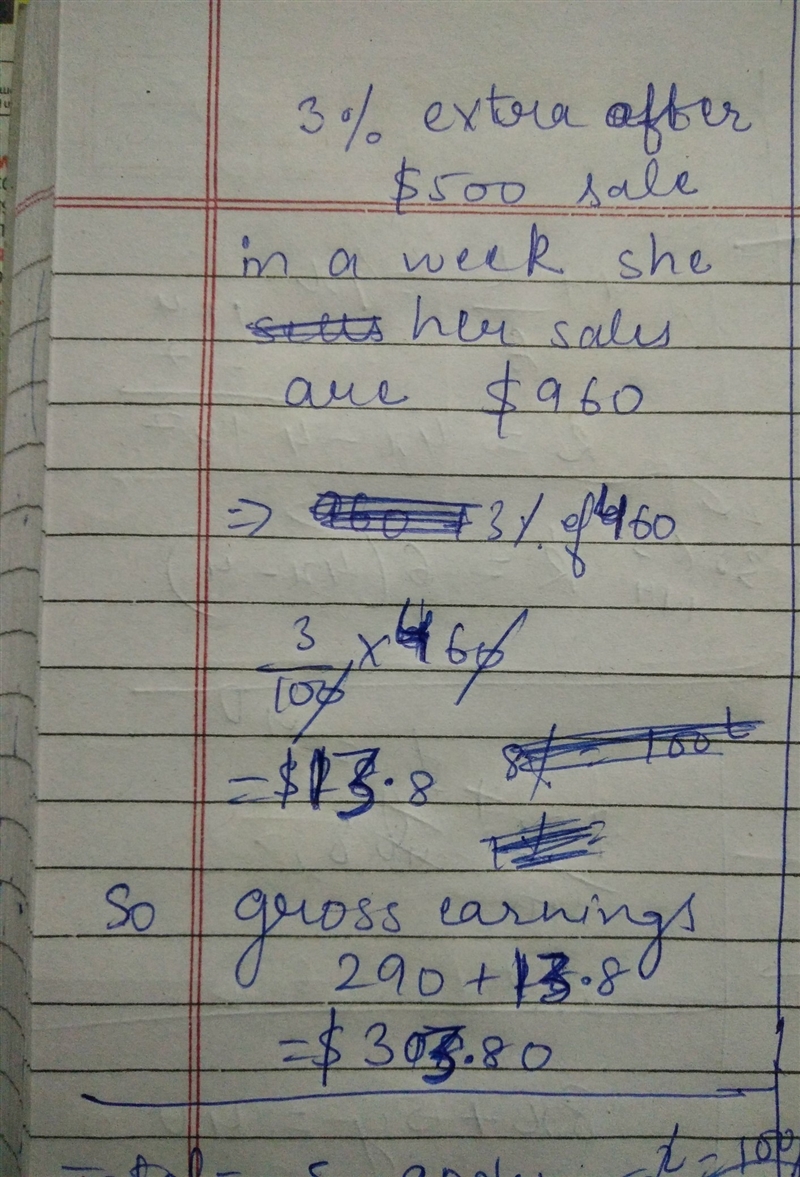 3% extra after
$500 sale
in a week she
her sales
are $960
⇒ 3% of 460
3/100 x 460
= $13.8
So gross earnings
290 + 13.8
= $303.80